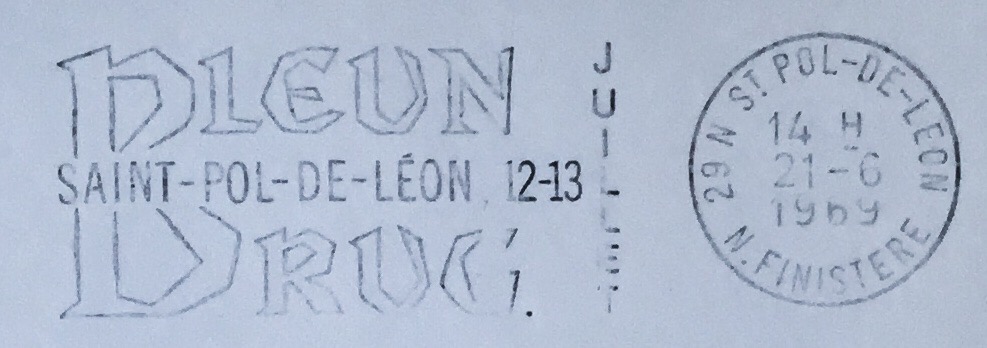 BLEUN
SAINT-POL-DE-LÉON 12-13
BRUG
JUILLET
29 N ST POL-DE-LEON
14 H
21-6
1969
N. FINISTERE